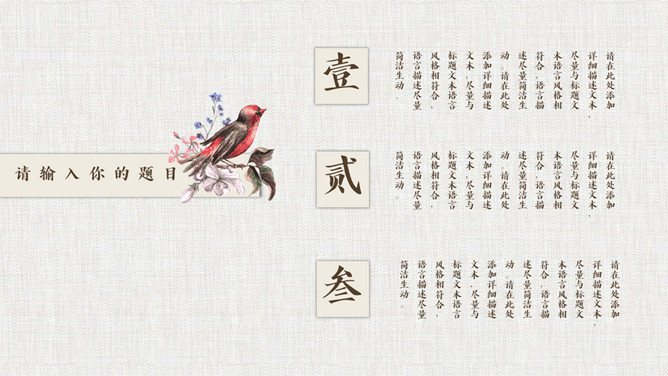 请输入你的题目
壹
请在此处添加
详细描述文本，
尽量与标题文
本语言风格相
符合，语言描
述尽量简洁生
动。请在此处
添加详细描述
文本，尽量与
标题文本语言
风格相符合，
语言描述尽量
简洁生动。
贰
请在此处添加
详细描述文本，
尽量与标题文
本语言风格相
符合，语言描
述尽量简洁生
动。请在此处
添加详细描述
文本，尽量与
标题文本语言
风格相符合，
语言描述尽量
简洁生动。
叁
请在此处添加
详细描述文本，
尽量与标题文
本语言风格相
符合，语言描
述尽量简洁生
动。请在此处
添加详细描述
文本，尽量与
标题文本语言
风格相符合，
语言描述尽量
简洁生动。